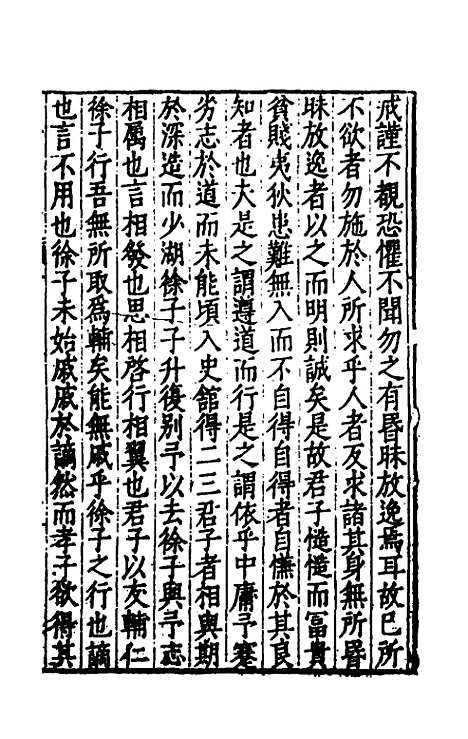 戒謹不覩恐懼不聞勿之有昏昧放逸焉耳故巳所
不欲者勿施於人所求乎人者反求諸其身無所昏
昧放逸者以之而明則誠矣是故君子慥慥而富貴
貧賤夷狄患難無入而不自得自得者自慊於其良
知者也夫是之謂遵道而行是之謂依乎中庸予蹇
劣志於道而未能頃入史舘得二三君子者相與期
於深造而少湖徐子子升復别予以去徐子與予志
相厲也言相發也思相啓行相翼也君子以友輔仁
徐子行吾無所取爲輔矣能無戚乎徐子之行也謫
也言不用也徐子未始戚戚於謫然而孝子欲得其